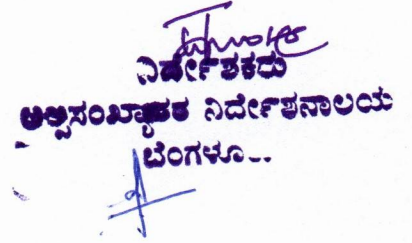 ನಿರ್ದೇಶಕರು
ಅಲ್ಪಸಂಖ್ಯಾತರ ನಿರ್ದೇಶನಾಲಯ
ಬೆಂಗಳೂ